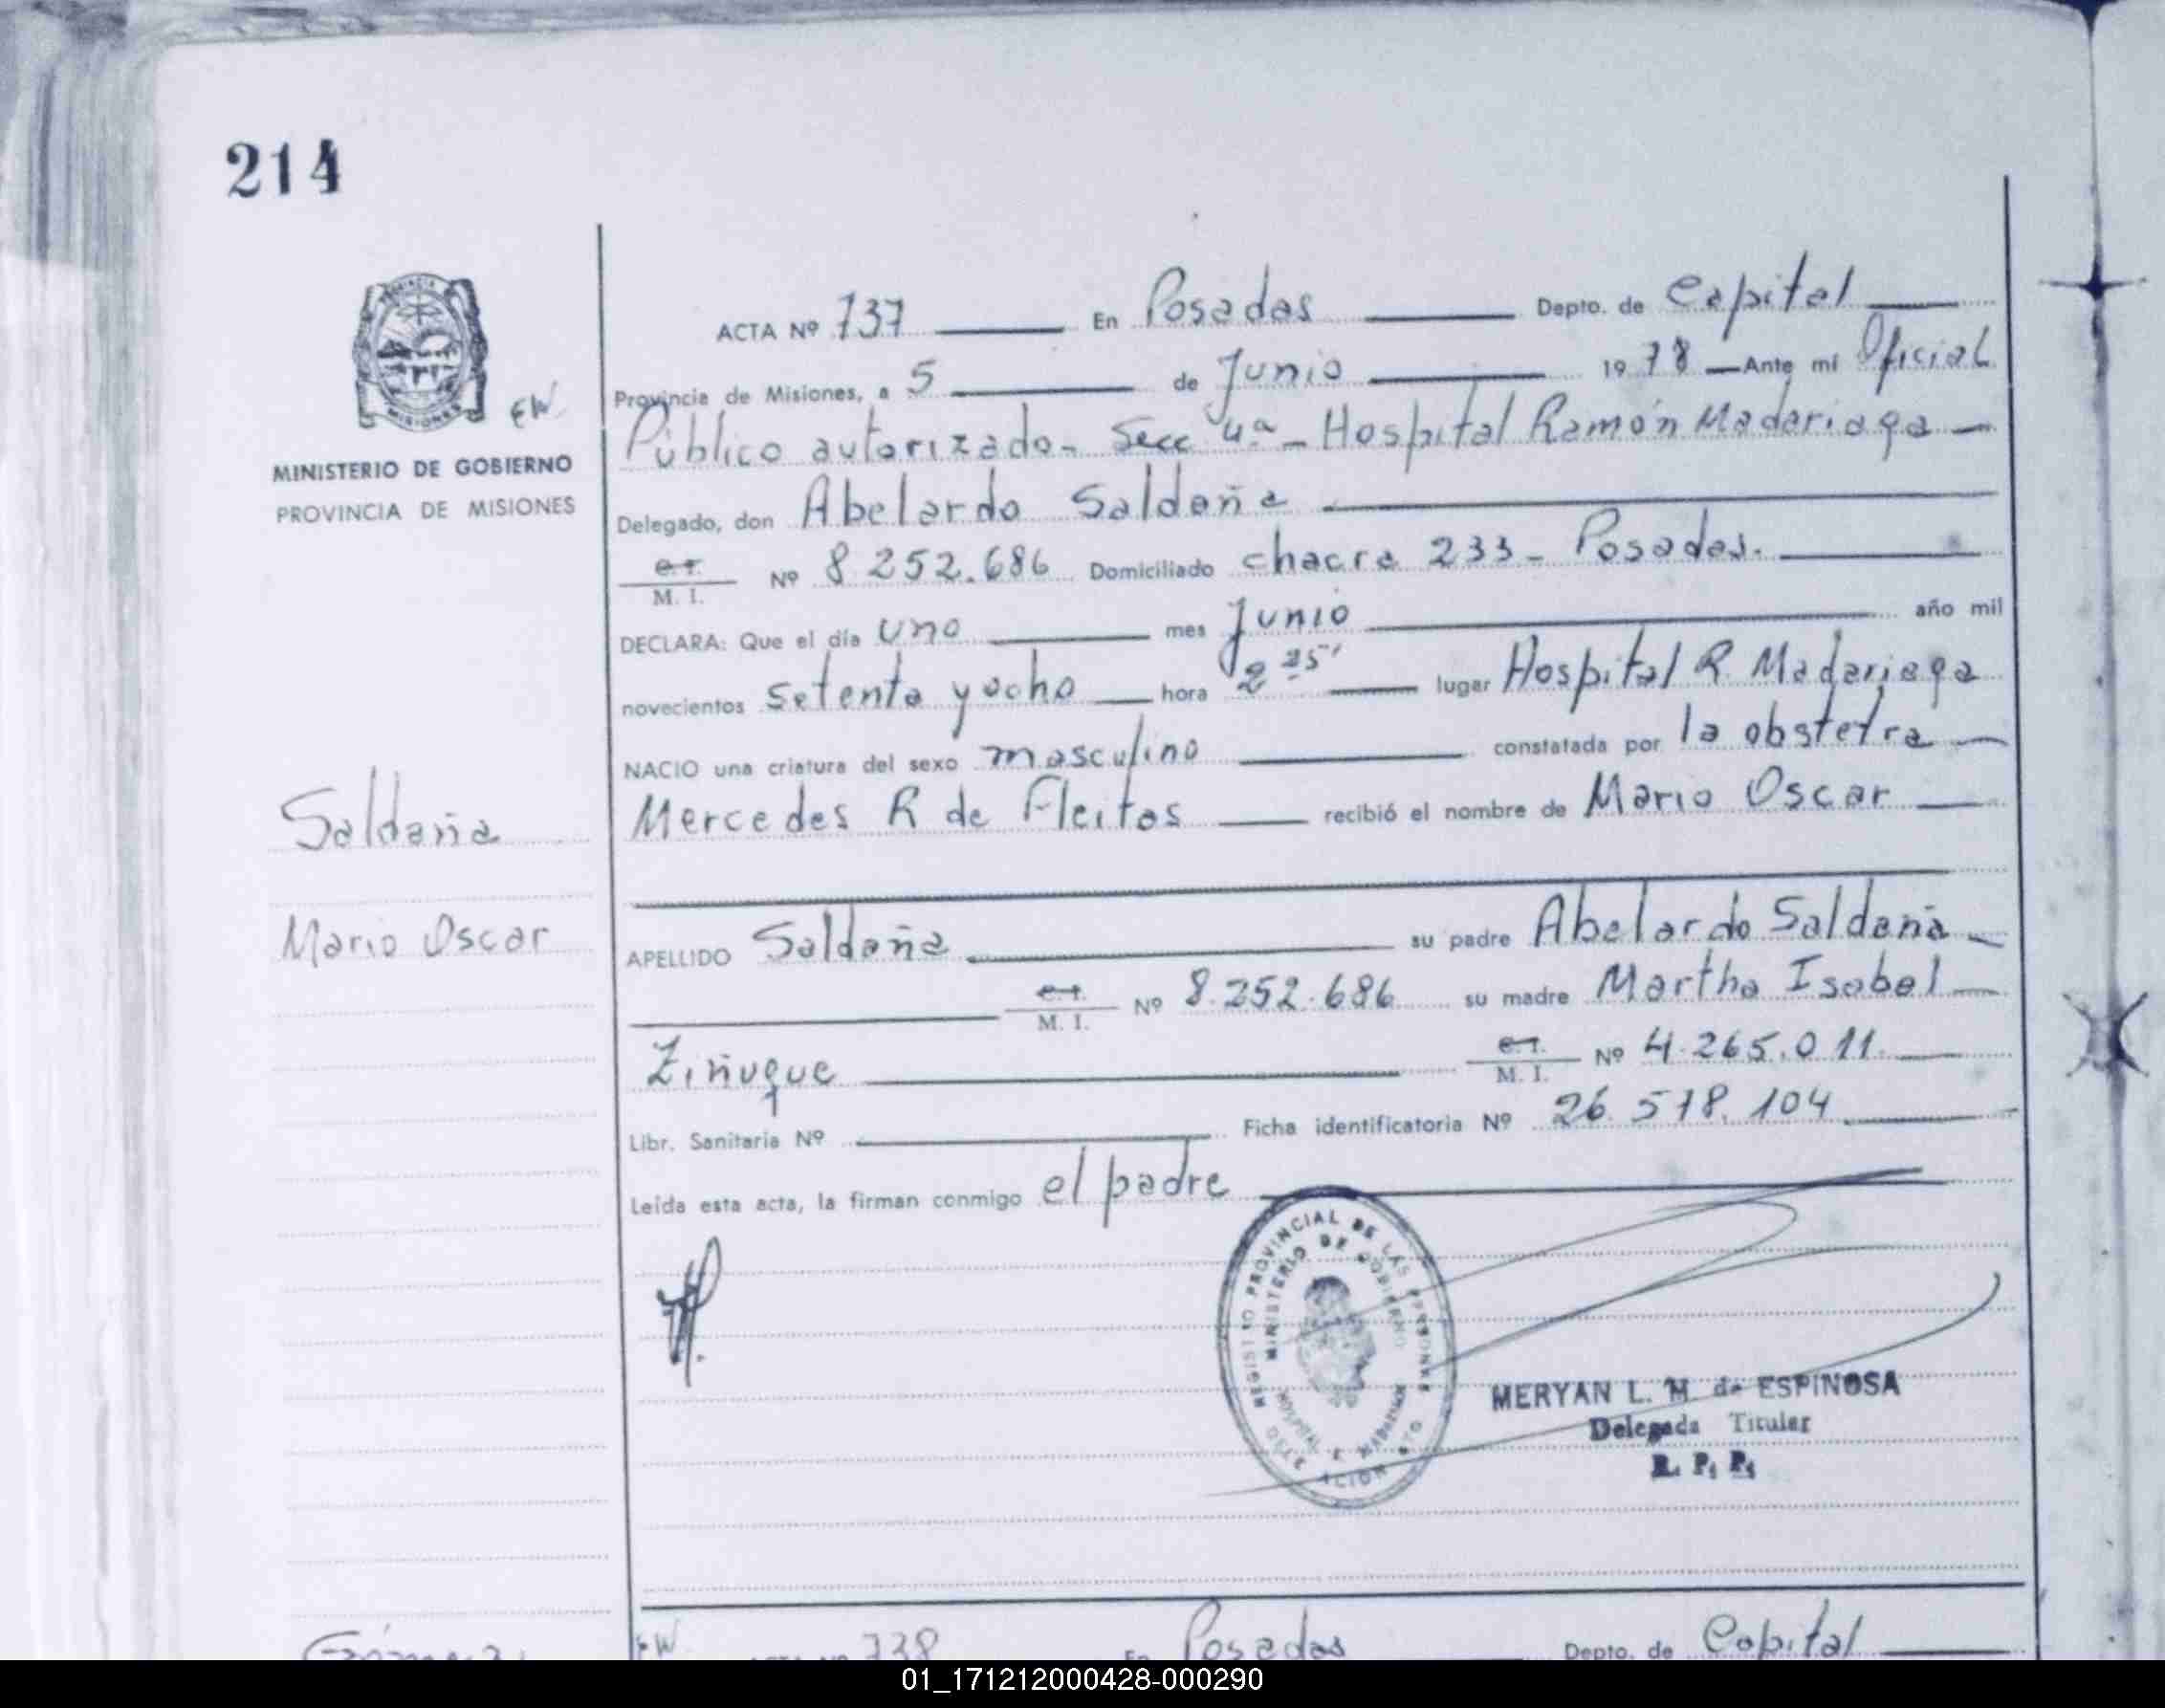 214
PROVINCIA
MISIONES
EW
MINISTERIO DE GOBIERNO
PROVINCIA DE MISIONES
Saldaña
Mario Oscar
ACTA Nº 737 En Posadas Depto. de Capital
Provincia de Misiones, a 5 de Junio 1978 — Ante mí Oficial
Público autorizado - Secc 4ª - Hospital Ramón Madariaga
Delegado, don Abelardo Saldaña
C. I. / M. I. Nº 8 252.686 Domiciliado chacra 233 - Posadas.
DECLARA: Que el día uno mes Junio año mil
novecientos setenta y ocho hora 2 25' lugar Hospital R. Madariaga
NACIO una criatura del sexo masculino constatada por la obstetra
Mercedes R de Fleitas recibió el nombre de Mario Oscar
APELLIDO Saldaña su padre Abelardo Saldaña
C. I. / M. I. Nº 8.252.686 su madre Martha Isabel
Ziñuque C. I. / M. I. Nº 4.265.011.
Libr. Sanitaria Nº Ficha identificatoria Nº 26.578.104
Leída esta acta, la firman conmigo el padre
REGISTRO PROVINCIAL DE LAS PERSONAS
MINISTERIO DE GOBIERNO
MERYAN L. M. de ESPINOSA
Delegada Titular
R. P. P.
EW 738 En Posadas Depto. de Capital
01_171212000428-000290